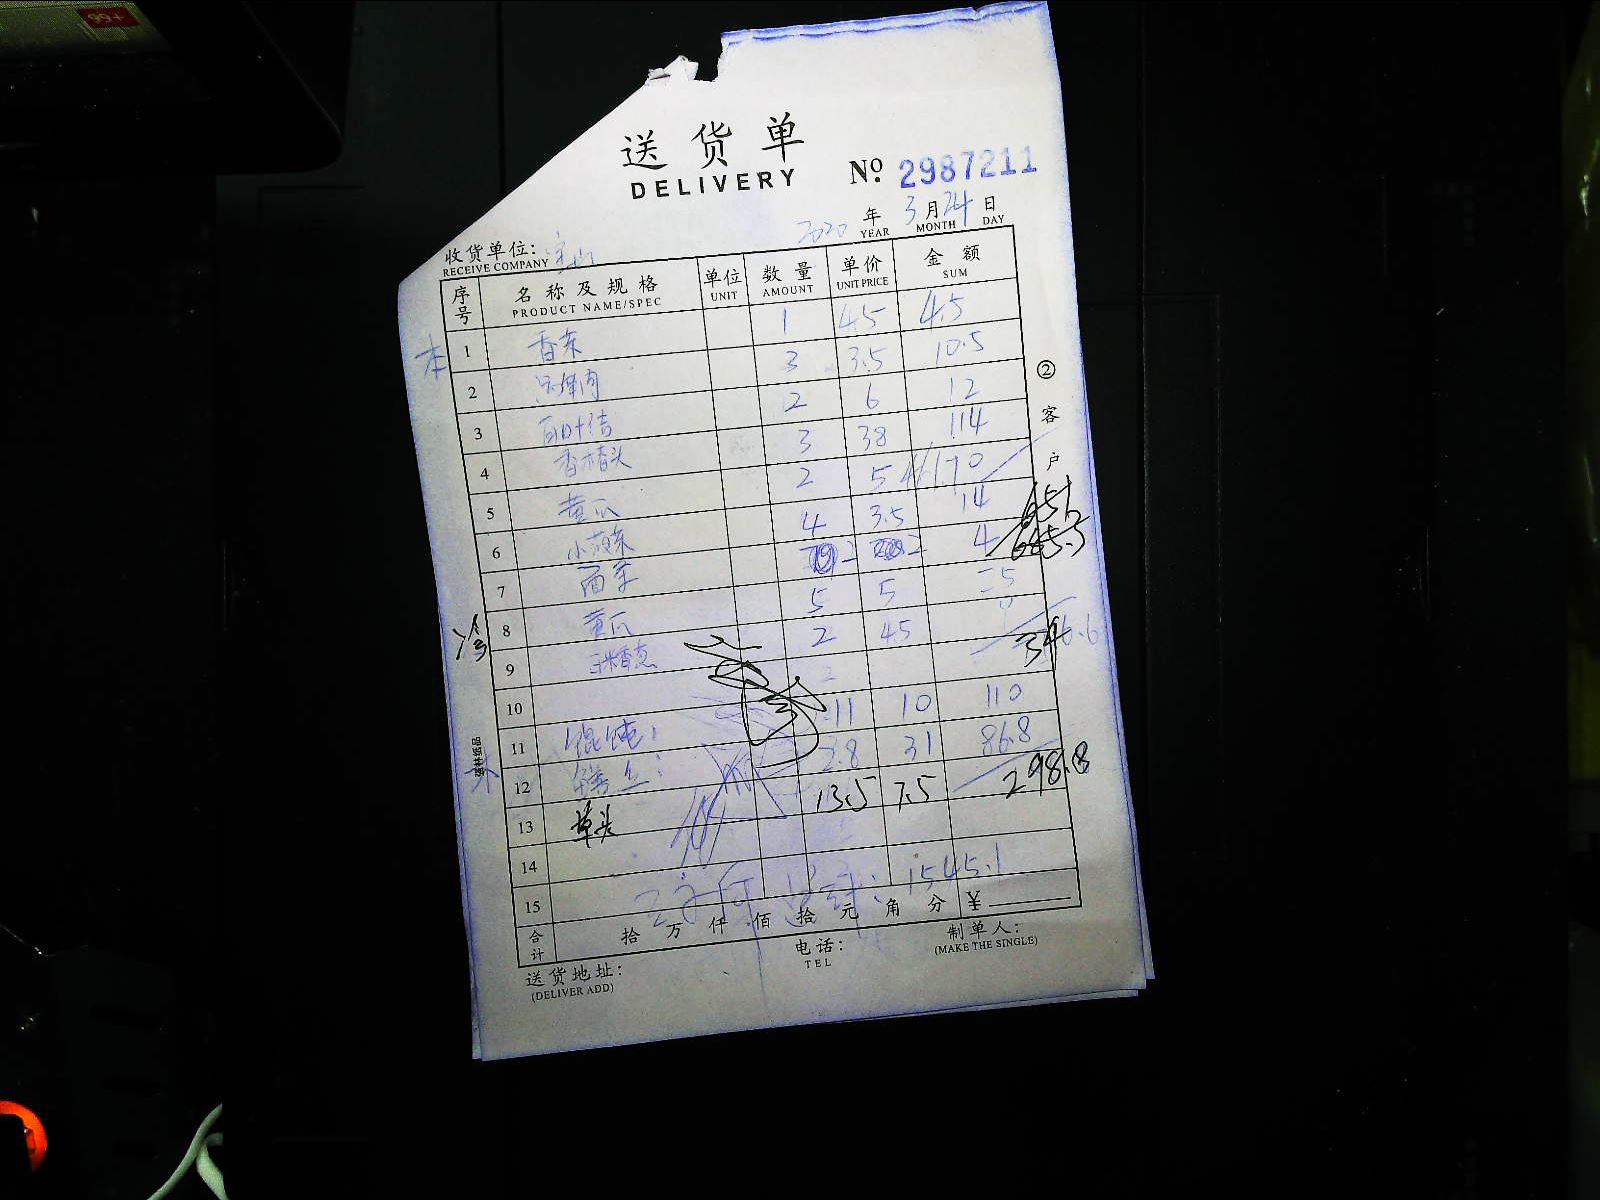 99+
送货单
DELIVERY
№ 2987211
2020 年 3 月 24 日
YEAR MONTH DAY
收货单位:
RECEIVE COMPANY
序号 名称及规格 单位 数量 单价 金额
PRODUCT NAME/SPEC UNIT AMOUNT UNIT PRICE SUM
本 1 香菜 1 45 4.5
2 3 3.5 10.5
3 百叶结 2 6 12
4 香椿头 3 38 114
5 黄瓜 2 5 10
6 小菠菜 4 3.5 14
7 西芹 2 2 4
8 黄瓜 5 5
冷 9 2 45
346.6
10
11 馄饨 11 10 110
12 2.8 31 86.8
13 草头 13.5 7.5
298.8
14
15 1545.1
合计 拾 万 仟 佰 拾 元 角 分 ¥
送货地址: 电话: 制单人:
(DELIVER ADD) TEL (MAKE THE SINGLE)
② 客户